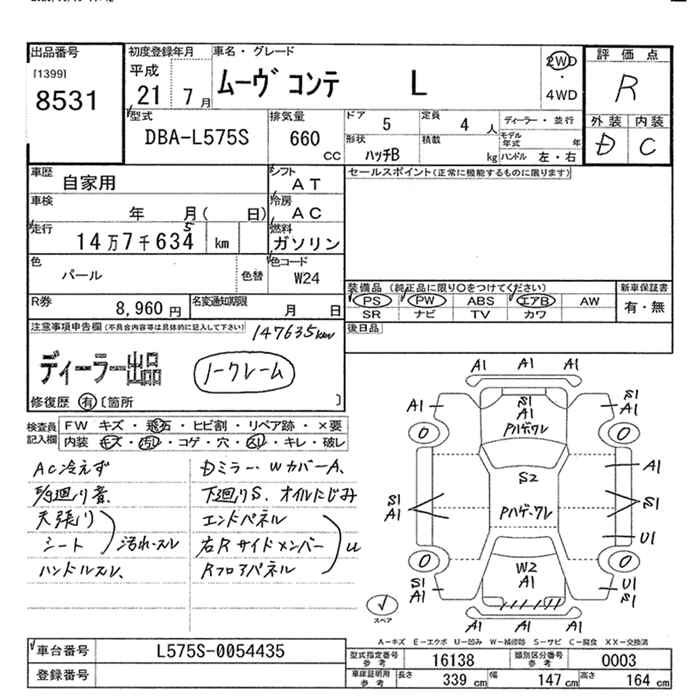 出品番号
[1399]
8531
初度登録年月
平成
21 7 月
車名・グレード
ムーヴ コンテ L
2WD
・
4WD
評価点
R
外装 内装
D C
型式
DBA-L575S
排気量
660
CC
ドア
5
定員
4 人
形状
ハッチB
積載
kg
ディーラー・並行
モデル年式 年
ハンドル 左・右
車歴
自家用
シフト
AT
車検
年 月( 日)
冷房
AC
走行
14万7千634 km
5
燃料
ガソリン
色
パール
色替
色コード
W24
R券
8,960 円
名変通知期限
月 日
セールスポイント(正常に機能するものに限ります)
装備品(純正品に限り○をつけてください)
PS PW ABS エアB AW
SR ナビ TV カワ
新車保証書
有・無
後日品
注意事項申告欄(不具合内容等は具体的に記入して下さい)
147635km
ディーラー出品
ノークレーム
修復歴 有 〔箇所 〕
検査員記入欄
FW キズ・飛石・ヒビ割・リペア跡・×要
内装 キズ・汚れ・コゲ・穴・凹レ・キレ・破レ
AC冷えず
天張り
シート
汚れ・スレ
ハンドルスレ、
Dミラー・WカバーA、
下廻りS、オイルにじみ
エンドパネル
右Rサイドメンバー
Rフロアパネル
U
A1 A1 A1
A1
S1
A1
Pハゲ・ワレ
S1
A1
S2
A1
S1
A1
Pハゲ・ワレ
S1
U1
W2
A1
S1
A1
U1
S1
A1 A1 A1
スペア
A－キズ E－エクボ U－凹み W－補修跡 S－サビ C－腐食 XX－交換済
車台番号
L575S-0054435
登録番号
型式指定番号
参考
16138
類別区分番号
参考
0003
車庫証明用
参考
長さ
339 cm
幅
147 cm
高さ
164 cm